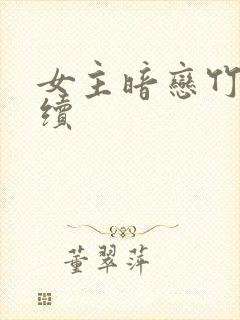 女主暗戀竹
續
董翠萍